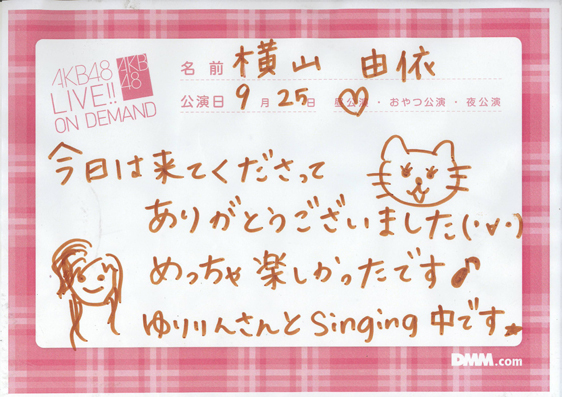 AKB48
LIVE!!
ON DEMAND
AKB
48
名前 横山 由依
公演日 9月25日 昼公演・おやつ公演・夜公演
今日は来てくださって
ありがとうございました(・∀・)
めっちゃ楽しかったです♪
ゆりりんさんとSinging中です★
DMM.com